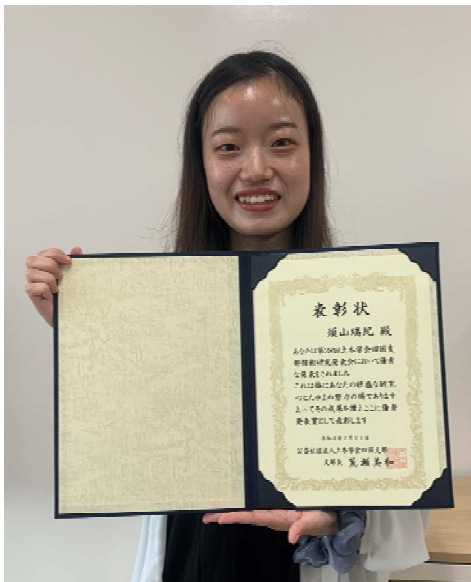 表彰状
須山瑞紀 殿
あなたは第 回土木学会四国支
部技術研究発表会において優秀
な発表をされました
これは偏にあなたの 研究
 努力の賜であります
よってその成果を讃えここに優秀
発表賞として表彰します
公益社団法人土木学会四国支部
支部長 荒瀬美和